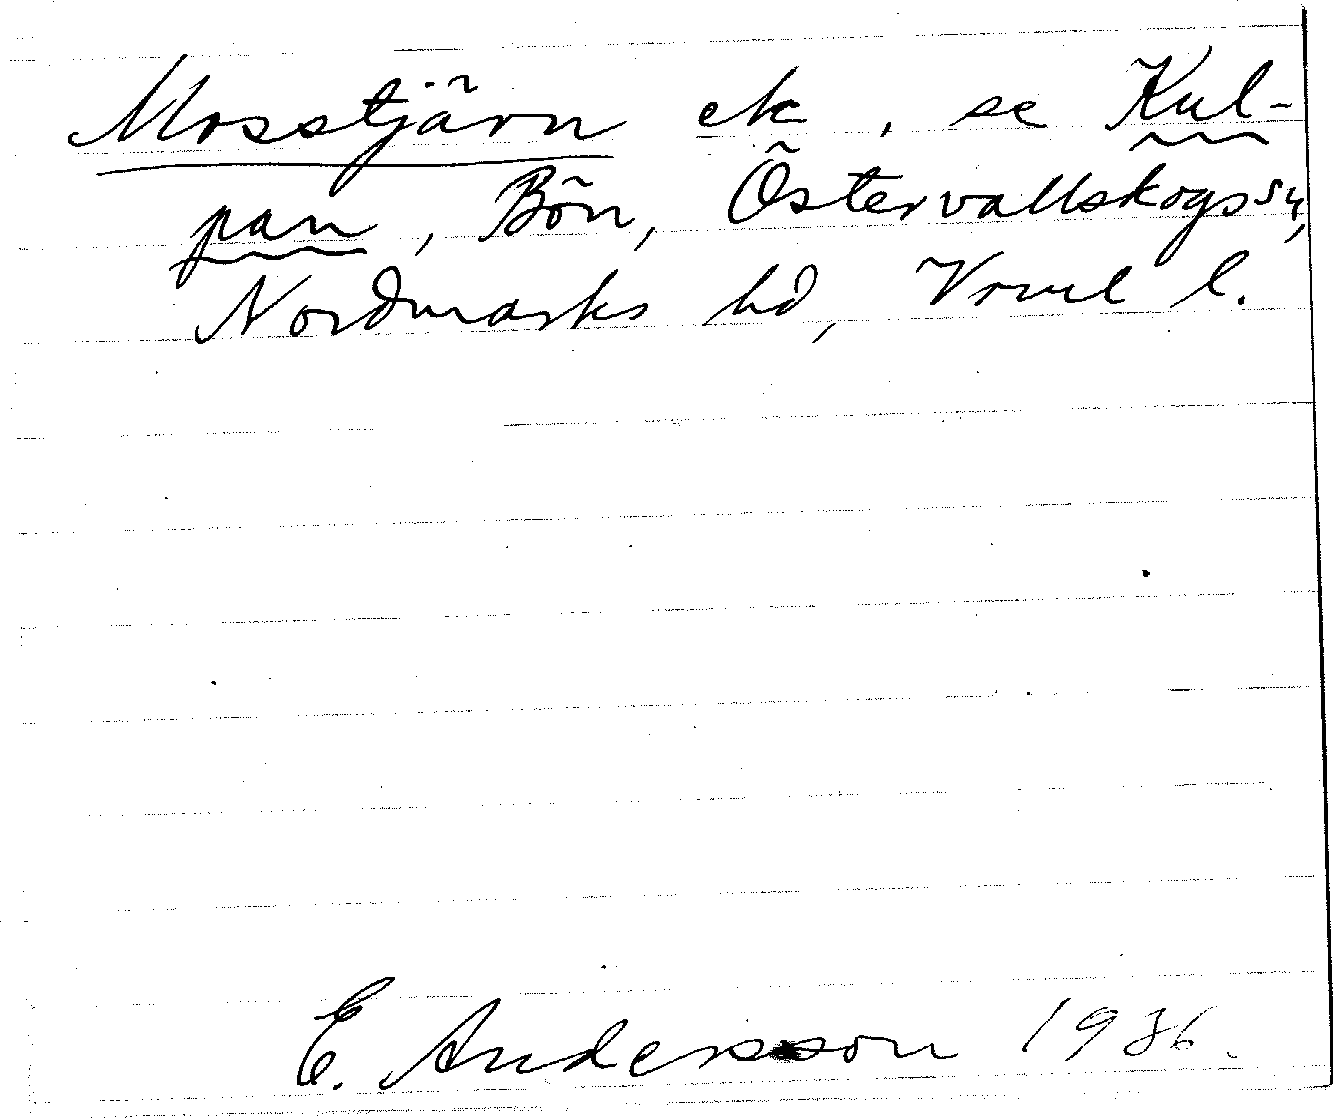 Mosstjärn ek, se Kul-
pan, Bön, Östervallskogs sn,
Nordmarks hd, Vrml l.
E. Andersson 1936.